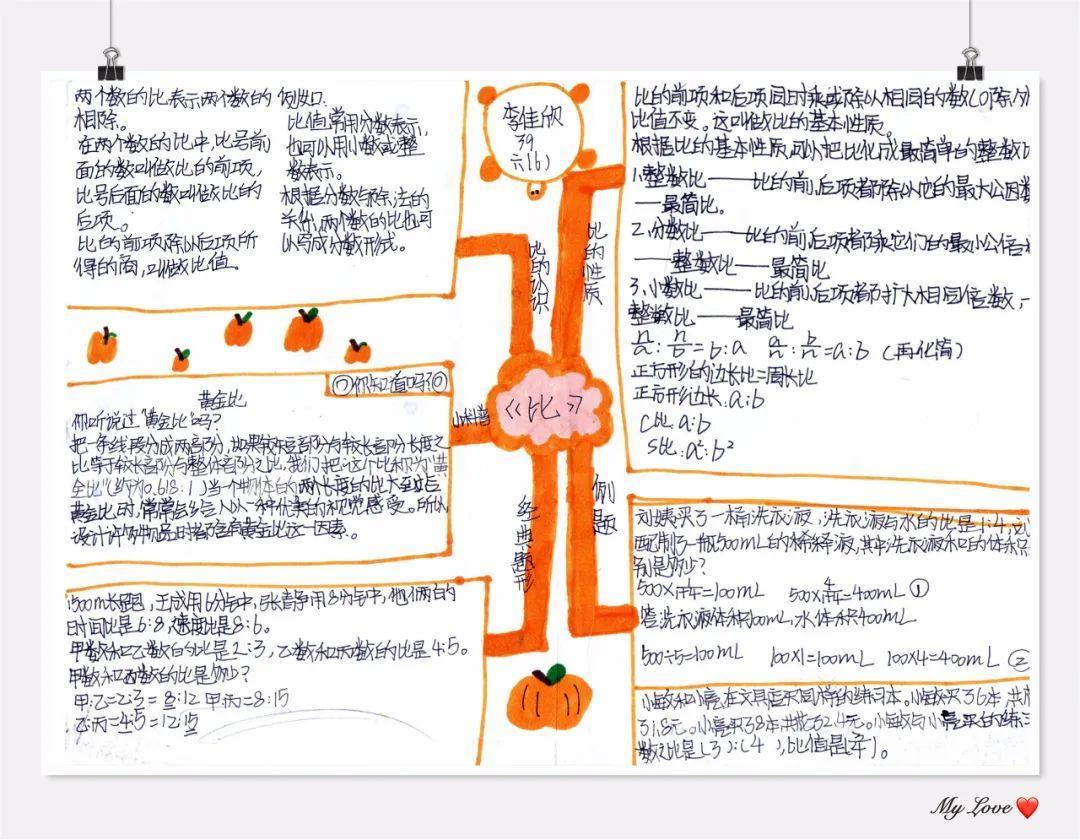 两个数的比表示两个数的
相除。
在两个数的比中,比号前
面的数叫做比的前项,
比号后面的数叫做比的
后项。
比的前项除以后项所
得的商,叫做比值。
例如:
比值常用分数表示,
也可以用小数或整
数表示。
根据分数与除法的
关系,两个数的比也可
以写成分数形式。
李佳欣
39
六(6)
比的认识
比的性质
比的前项和后项同时乘或除以相同的数(0除外)
比值不变。这叫做比的基本性质。
根据比的基本性质,可以把比化成最简单的整数比
1.整数比——比的前,后项都除以它的最大公因数
——最简比。
2.分数比——比的前,后项都乘它们的最小公倍
——整数比——最简比
3.小数比——比的前,后项都扩大相同倍数,
整数比——最简比
正方形的边长比=周长比
正方形边长:a:b
C比:a:b
S比:a²:b²
《比》
小科普
①你知道吗?
黄金比
你听说过"黄金比"吗?
把一条线段分成两部分,如果较短部分与较长部分长度之
比等于较长部分与整体部分之比,我们把这个比称为"黄
金比"(约为0.618:1)当一个物体的两个长度的比大致符合
黄金比时,常常会给人以一种优美的视觉感受。所以
设计许多物品时都含有黄金比这一因素。
经典题形
例题
1500m长跑,王成用6分钟,张静用8分钟,他俩的
时间比是6:8,速度比是8:6。
甲数和乙数的比是2:3,乙数和丙数的比是4:5。
甲数和丙数的比是多少?
甲:乙=2:3=8:12 甲:丙=8:15
乙:丙=4:5=12:15
刘姨买了一桶洗衣液,洗衣液与水的比是1:4,
配制了一瓶500mL的稀释液,其中洗衣液和水的体积
别是多少?
500×=100mL 500×=400mL ①
答:洗衣液体积100mL,水体积400mL
500÷5=100mL 100×1=100mL 100×4=400mL ②
小敏和小亮在文具店买同样的练习本。小敏买了6本,共
了1.8元。小亮买了8本,共花了2.4元。小敏与小亮买的练习
数之比是(3):(4),比值是()。
My Love